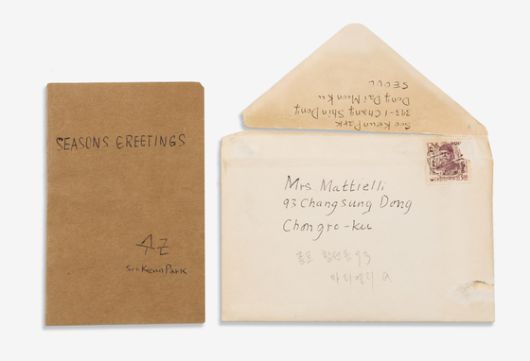 SEASONS GREETINGS
수근
Soo Keun Park
Soo Keun Park
393-1 Chang Shin Dong
Dong Dai Moon Ku
SEOUL
Mrs. Mattielli
93 Changsung Dong
Chongro-ku
종로 창성동 93
마티엘리